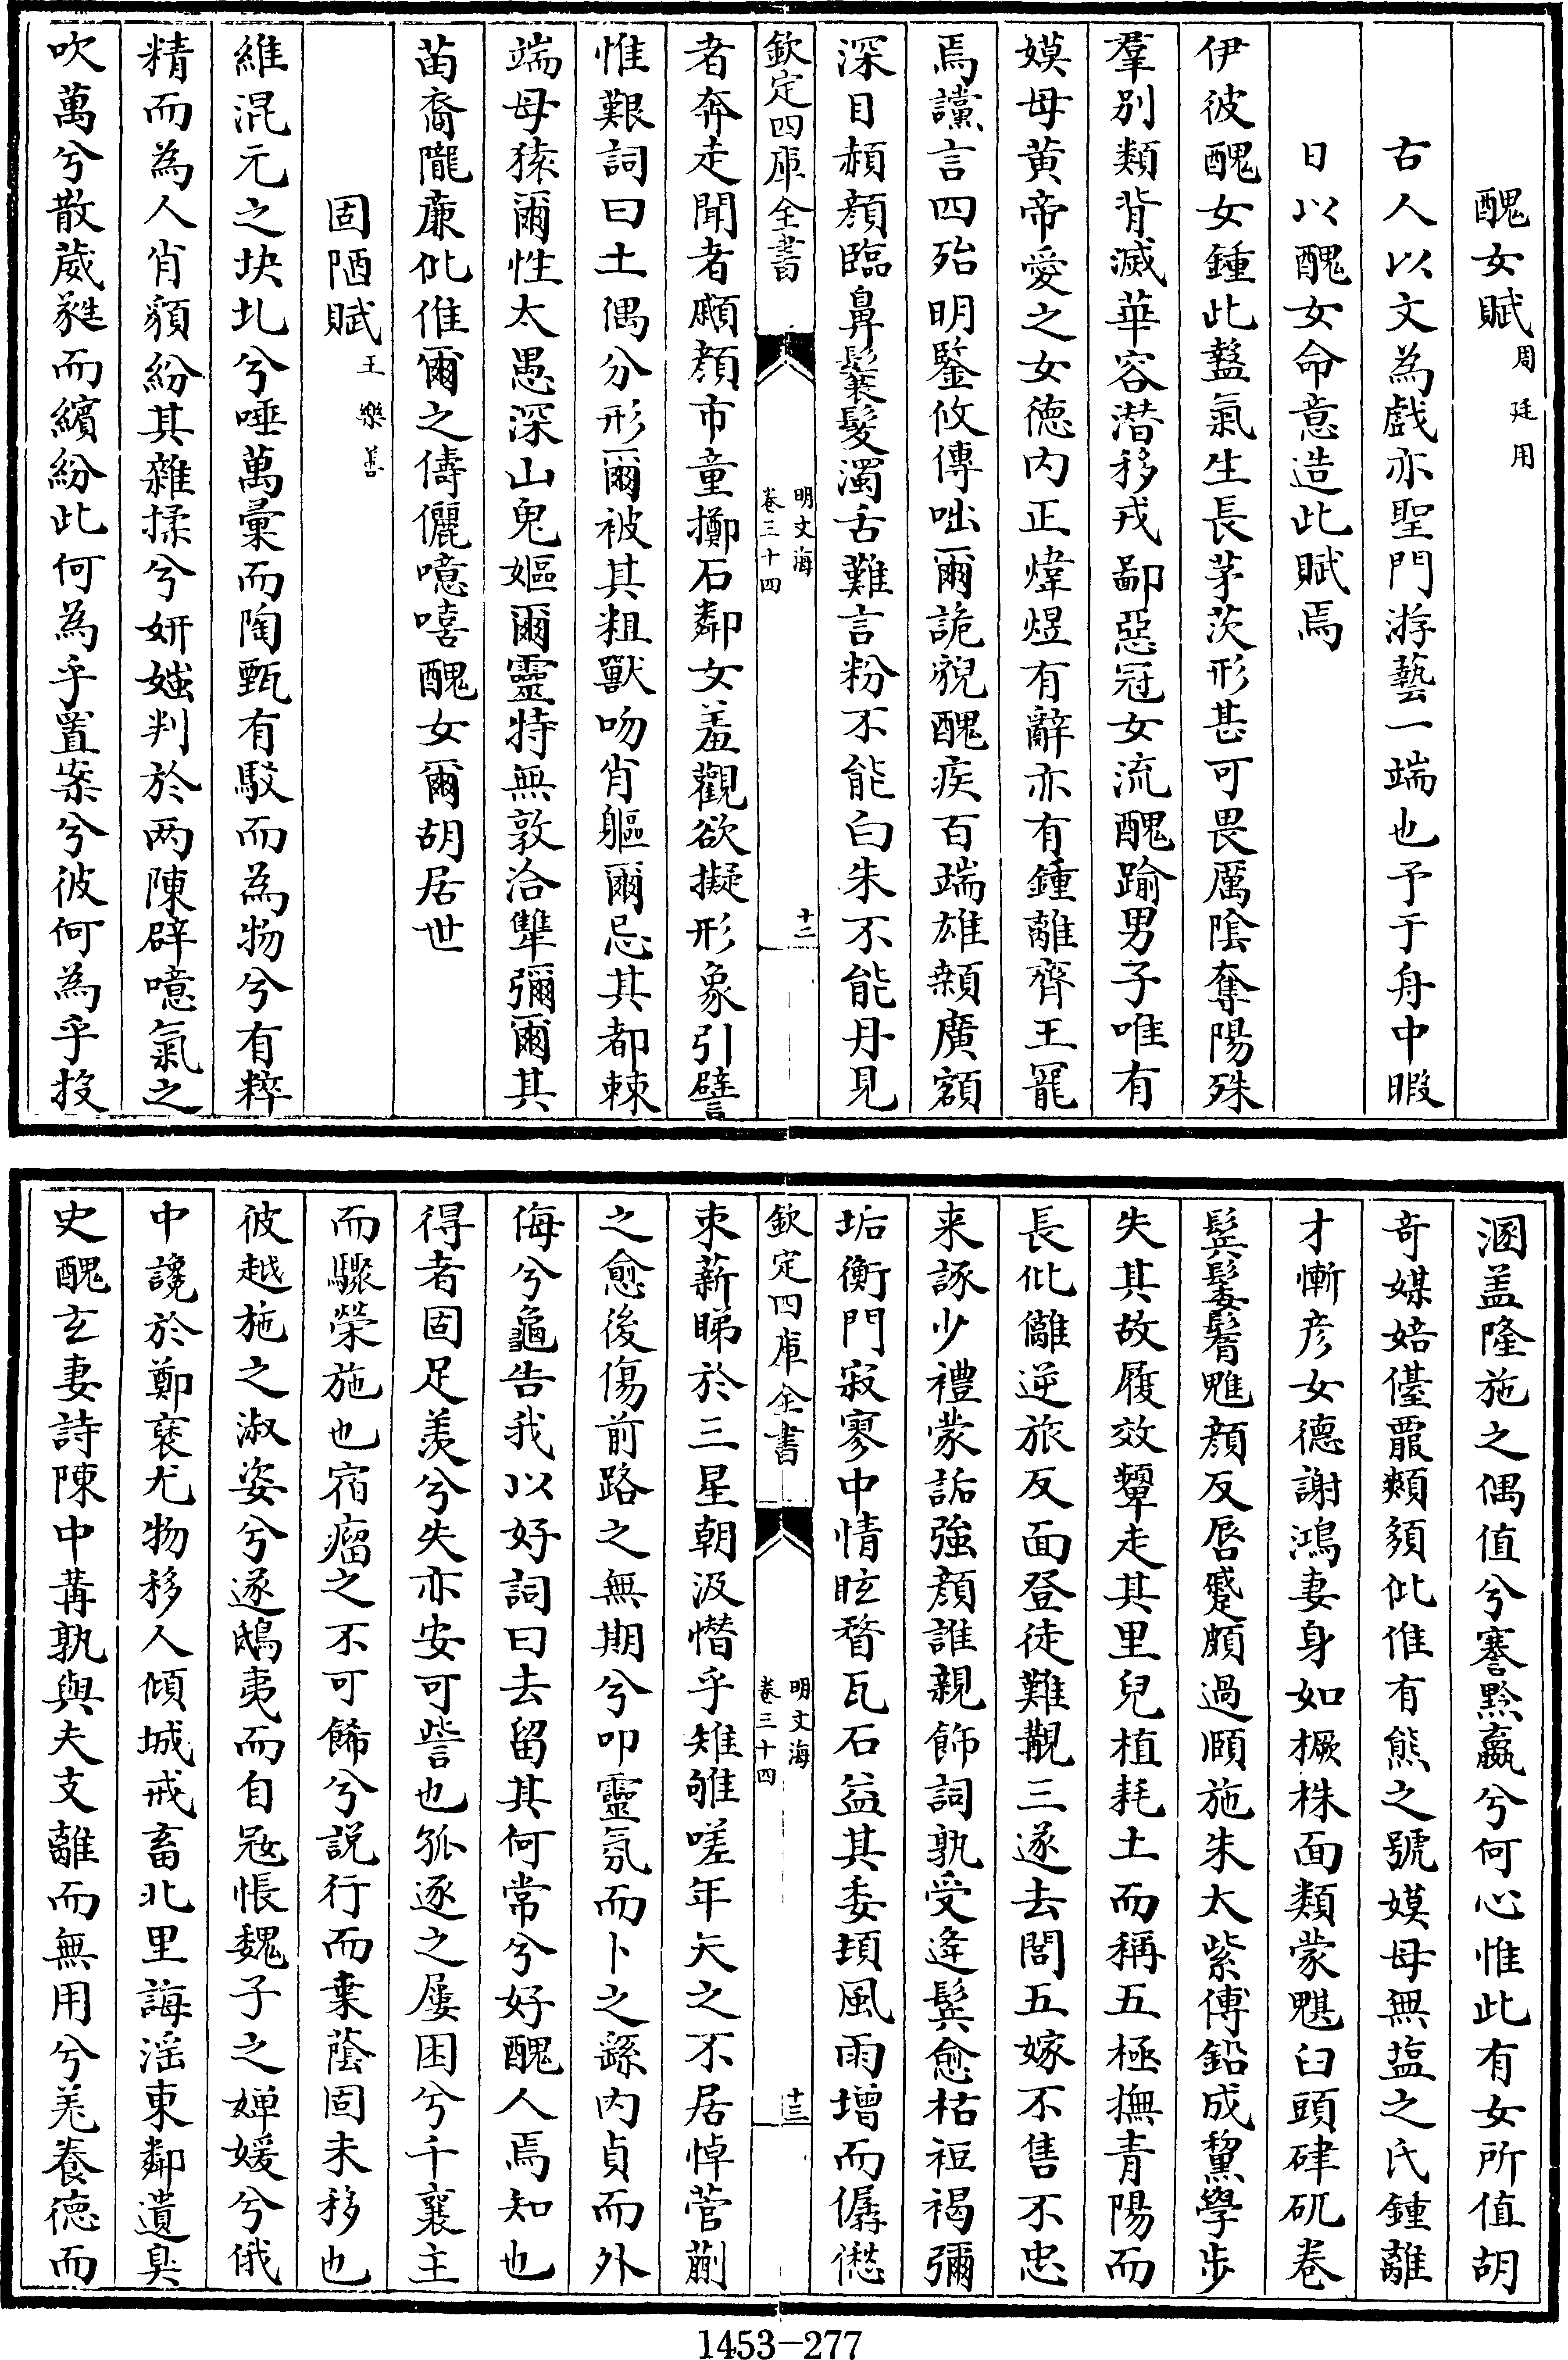 醜女賦周廷用
古人以文為戲亦聖門游藝一端也予于舟中暇
日以醜女命意造此賦焉
伊彼醜女鍾此盭氣生長茅茨形甚可畏厲陰奪陽殊
羣别類背滅華容潜移戎鄙惡冠女流醜踰男子唯有
嫫母黄帝愛之女徳内正煒煜有辭亦有鍾離齊王寵
焉讜言四殆明鑒攸傳咄爾詭貌醜疾百端雄顙廣額
深目頳顔臨鼻鬤髮濁舌難言粉不能白朱不能丹見
欽定四庫全書
明文海
卷三十四
十二
者奔走聞者顣顔市童擲石鄰女羞觀欲擬形象引譬
惟艱詞曰土偶分形爾被其粗獸吻肖軀爾忌其都棘
端母猿爾性太愚深山鬼嫗爾靈特無敦洽犨彌爾其
苗裔隴亷仳倠爾之儔儷噫嘻醜女爾胡居世
固陋賦王樂善
維混元之坱圠兮唾萬彚而陶甄有駁而為物兮有粹
精而為人肖䫉紛其雜揉兮妍媸判於两陳辟噫氣之
吹萬兮散葳蕤而繽紛此何為乎置案兮彼何為乎投
溷盖隆施之偶值兮謇黔嬴兮何心惟此有女所值胡
竒媒㛐儓䫥頪頦仳倠有熊之號嫫母無盐之氏鍾離
才慚彦女德謝鴻妻身如橛株面類蒙魌臼頭硉矹巻
鬂髲鬌魋顔反唇蹙頞過頤施朱太紫傅鉛成黧學歩
失其故履效顰走其里兒植耗土而稱五極撫青陽而
長仳儺逆旅反面登徒難覯三遂去閭五嫁不售不忠
来諑少禮蒙詬強顔誰親飾詞孰受逄鬂愈枯裋褐彌
垢衡門寂寥中情眩瞀瓦石益其委頓風雨增而僝僽
欽定四庫全書
明文海
卷三十四
十三
束薪睇於三星朝汲憯乎雉鴝嗟年矢之不居悼菅蒯
之愈後傷前路之無期兮叩靈氛而卜之繇内貞而外
侮兮龜告我以好詞曰去留其何常兮好醜人焉知也
得者固足羡兮失亦安可訾也孤逐之屢困兮千襄主
而驟榮施也宿瘤之不可餙兮説行而棄䕃固未移也
彼越施之淑姿兮遂鴟夷而自冦悵魏子之嬋媛兮俄
中讒於鄭袤尤物移人傾城戒畜北里誨淫東鄰遺臭
史醜玄妻詩陳中冓孰與夫支離而無用兮羌養徳而
1453-277